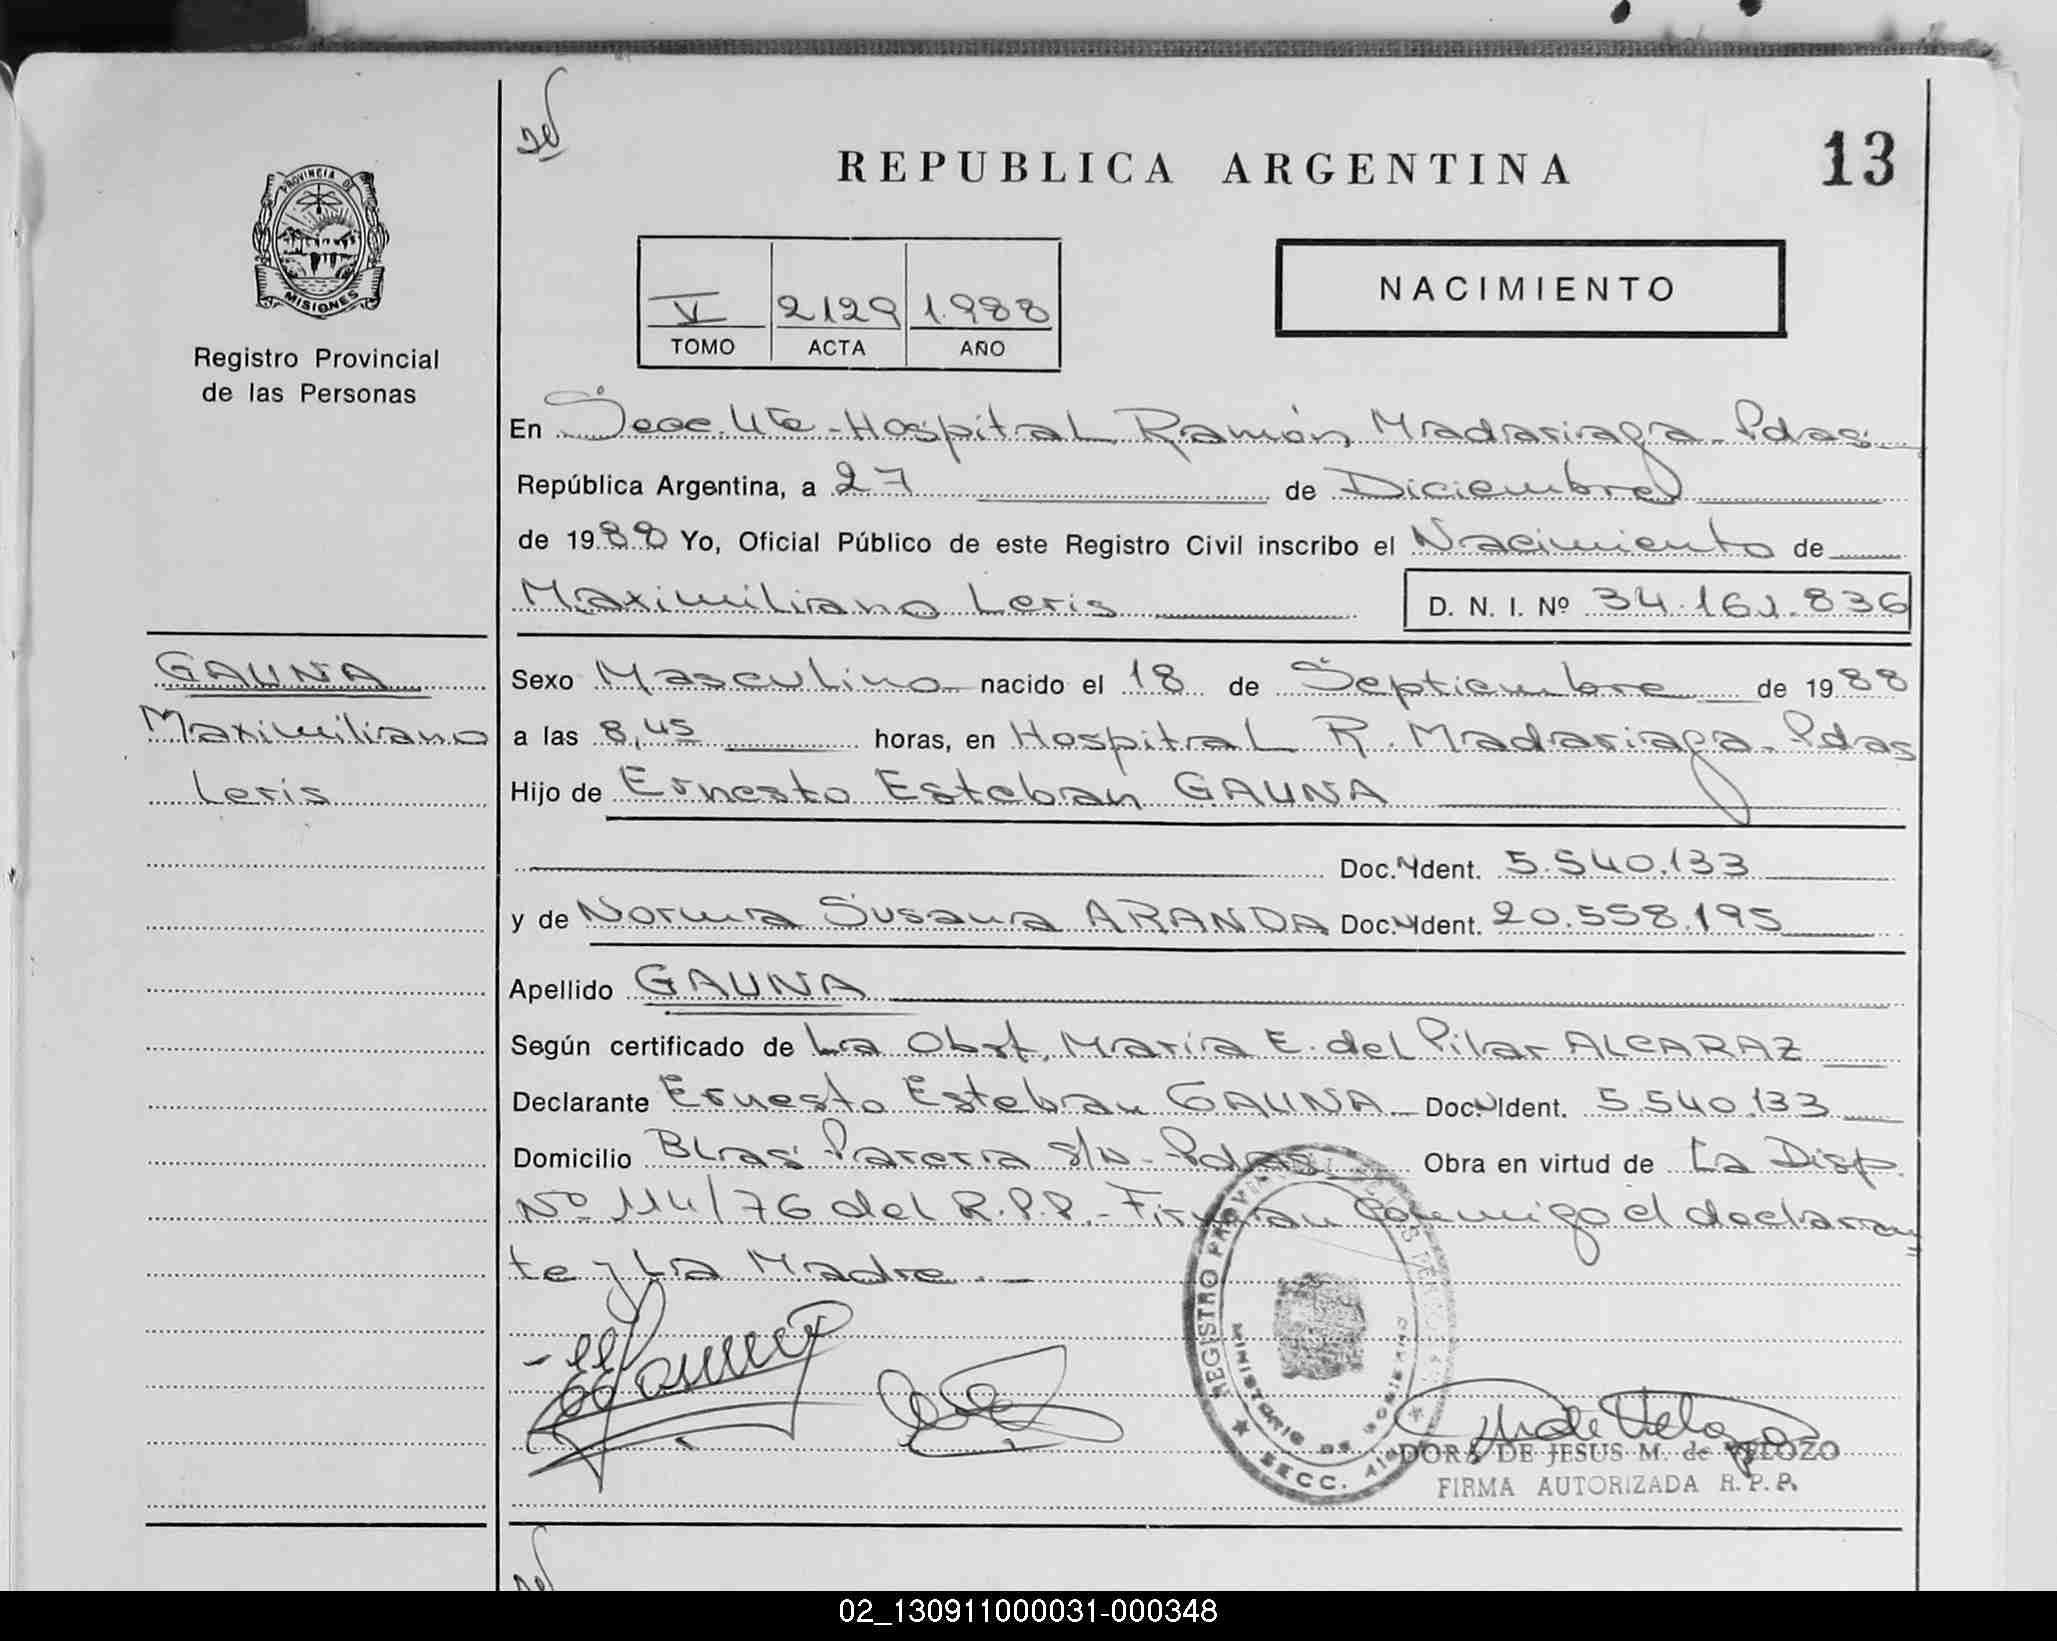 REPUBLICA ARGENTINA
13
PROVINCIA DE
MISIONES
Registro Provincial
de las Personas
V 2129 1.988
TOMO ACTA AÑO
NACIMIENTO
En Secc. 4ta - Hospital Ramón Madariaga - Pdas
República Argentina, a 27 de Diciembre
de 1988 Yo, Oficial Público de este Registro Civil inscribo el Nacimiento de
Maximiliano Leris D. N. I. Nº 34.161.836
GAUNA
Maximiliano
Leris
Sexo Masculino nacido el 18 de Septiembre de 1988
a las 8,45 horas, en Hospital R. Madariaga - Pdas
Hijo de Ernesto Esteban GAUNA
Doc. Ydent. 5.540.133
y de Norma Susana ARANDA Doc. Ydent. 20.558.195
Apellido GAUNA
Según certificado de La Obst. María E. del Pilar ALCARAZ
Declarante Ernesto Esteban GAUNA - Doc. Ident. 5.540.133
Domicilio Blas Parera s/n - Pdas Obra en virtud de La Disp.
Nº 114/76 del R.P.P. - Firman conmigo el declaran
te y La Madre. -
REGISTRO
MINISTERIO DE GOBIERNO
SECC.
DORA DE JESUS M. de VELOZO
FIRMA AUTORIZADA R. P. P.
02_130911000031-000348